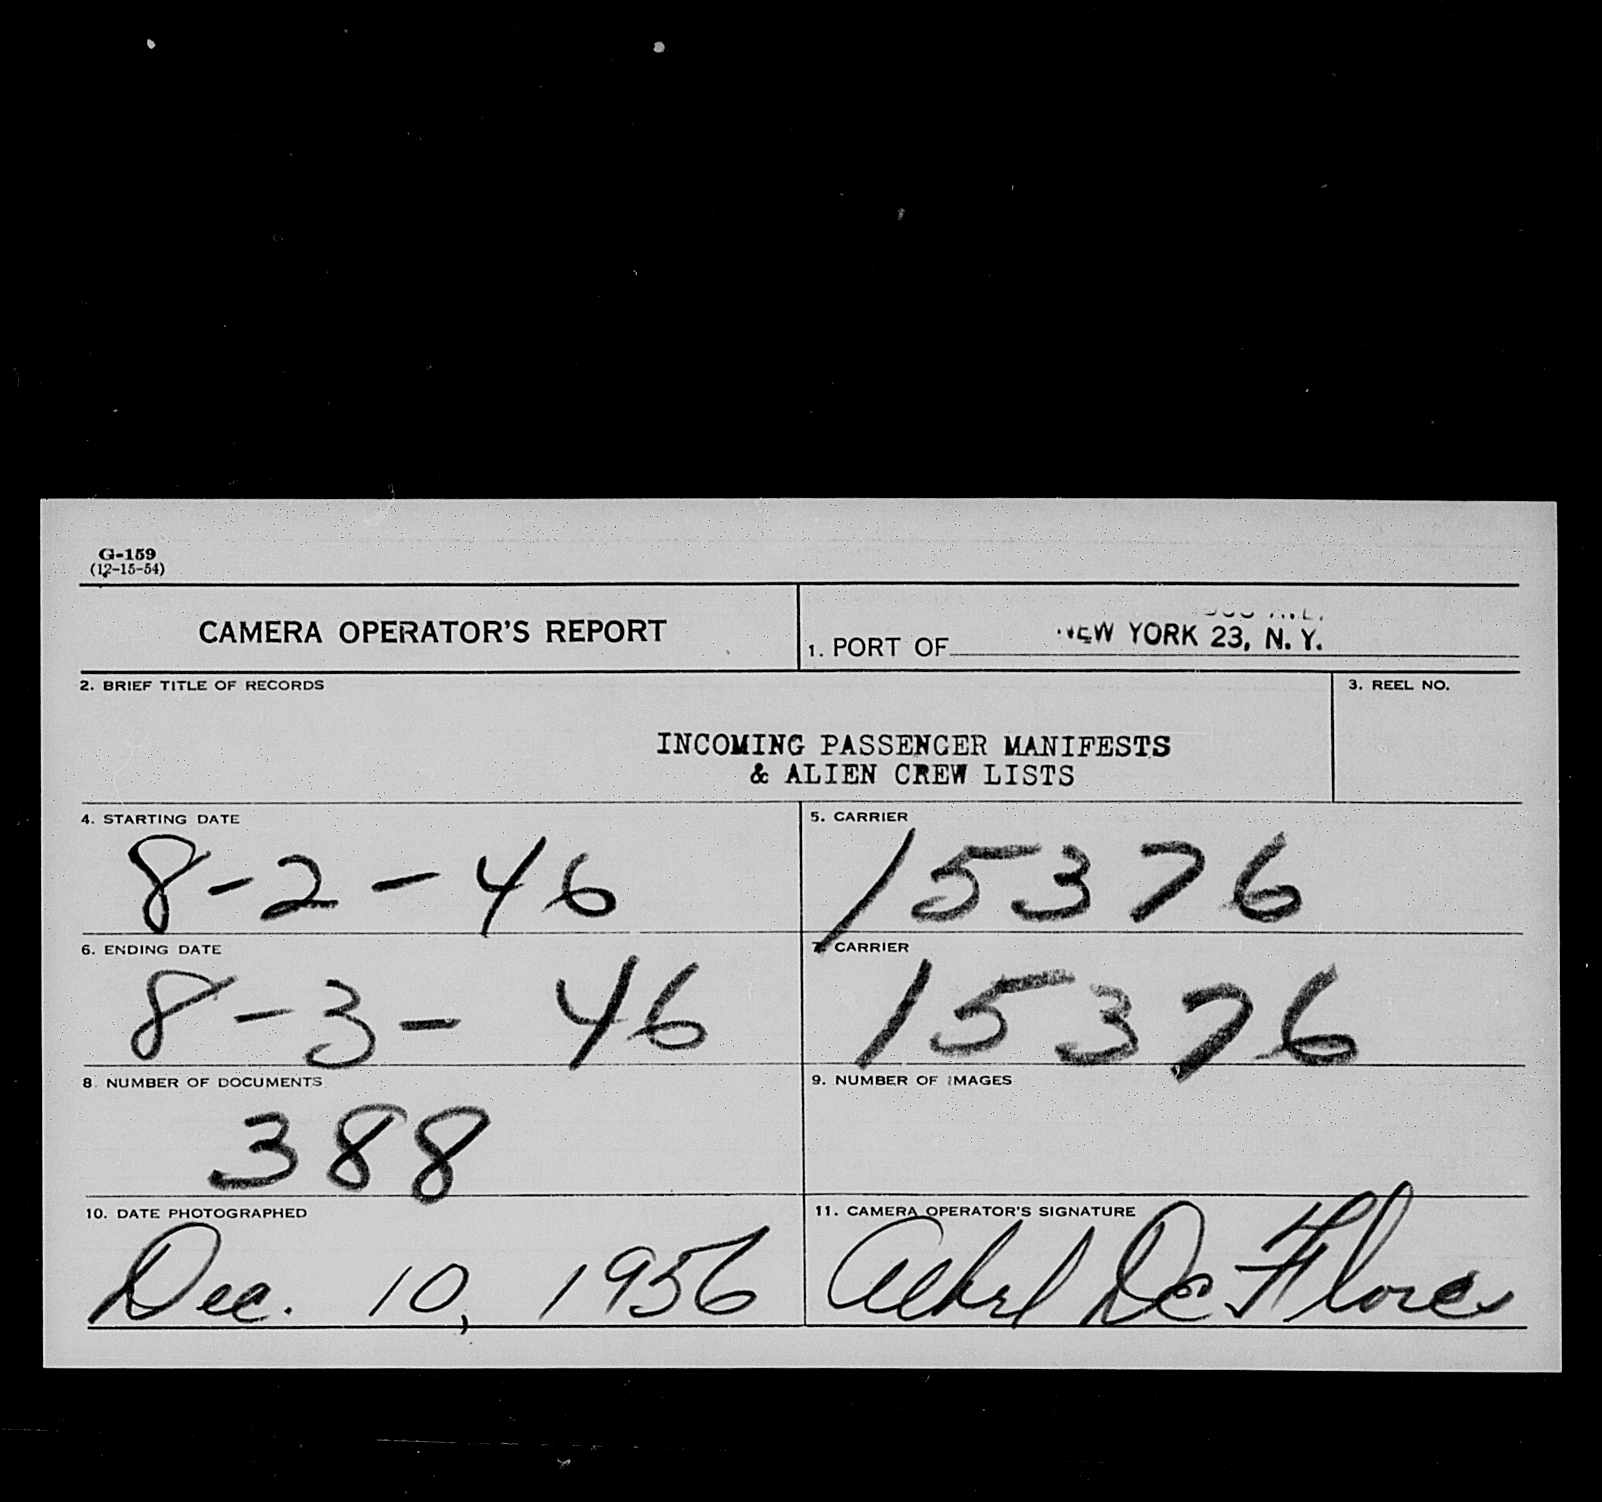 G-159
(12-15-54)
CAMERA OPERATOR'S REPORT
1. PORT OF
NEW YORK 23, N. Y.
2. BRIEF TITLE OF RECORDS
3. REEL NO.
INCOMING PASSENGER MANIFESTS
& ALIEN CREW LISTS
4. STARTING DATE
8-2-46
5. CARRIER
15376
6. ENDING DATE
8-3-46
7. CARRIER
15376
8. NUMBER OF DOCUMENTS
388
9. NUMBER OF IMAGES
10. DATE PHOTOGRAPHED
Dec. 10, 1956
11. CAMERA OPERATOR'S SIGNATURE
De Flores